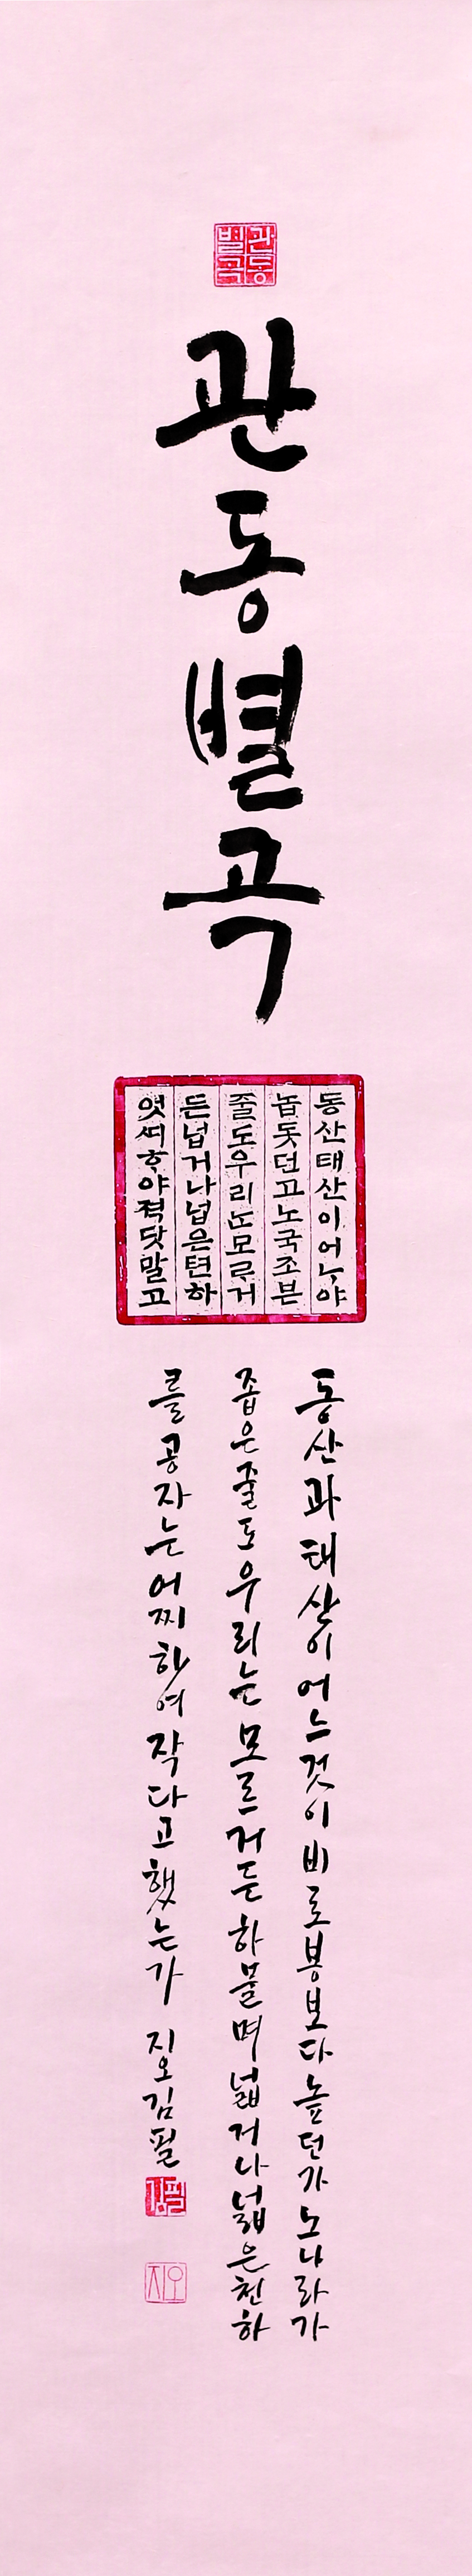 관동
별곡
관동별곡
동산태산이어ᄂᆞ야
놉돗던고노국조븐
줄도우리ᄂᆞᆫ모ᄅᆞ거
든넙거나넙은텬하
엇써ᄒᆞ야젹닷말고
동산과태산이어느것이비로봉보다높던가노나라가
좁은줄도우리는모르거든하물며넓거나넓은천하
를공자는어찌하여작다고했는가 지오김필
김필
지오